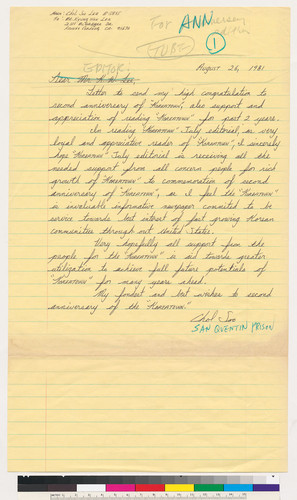 From: Chol Soo Lee
To: Mr. Kyung Won Lee
For ANNiversary
TUBE
1
EDITOR:
August 26, 1981
Dear Mr. K.W. Lee,
Letter to send my high congratulation to
second anniversary of "KOREATOWN"; also support and
appreciation of reading "KOREATOWN" for past 2 years.
In reading "KOREATOWN" July editorial, as very
loyal and appreciative reader of "KOREATOWN", I sincerely
hope KOREATOWN July editorial is receiving all the
needed support from all concern people for rich
growth of "KOREATOWN" to commemoration of second
anniversary of "KOREATOWN", as I feel the "KOREATOWN"
is invaluable informative newspaper commited to be
service towards best interest of fast growing Korean
communities through out United States.
Very hopefully all support from the
people for the "KOREATOWN" is aid towards greater
utilization to achieve full future potentials of
"KOREATOWN" for many years ahead.
My fondest and best wishes to second
anniversary of the "KOREATOWN."
Chol Soo
SAN QUENTIN PRISON